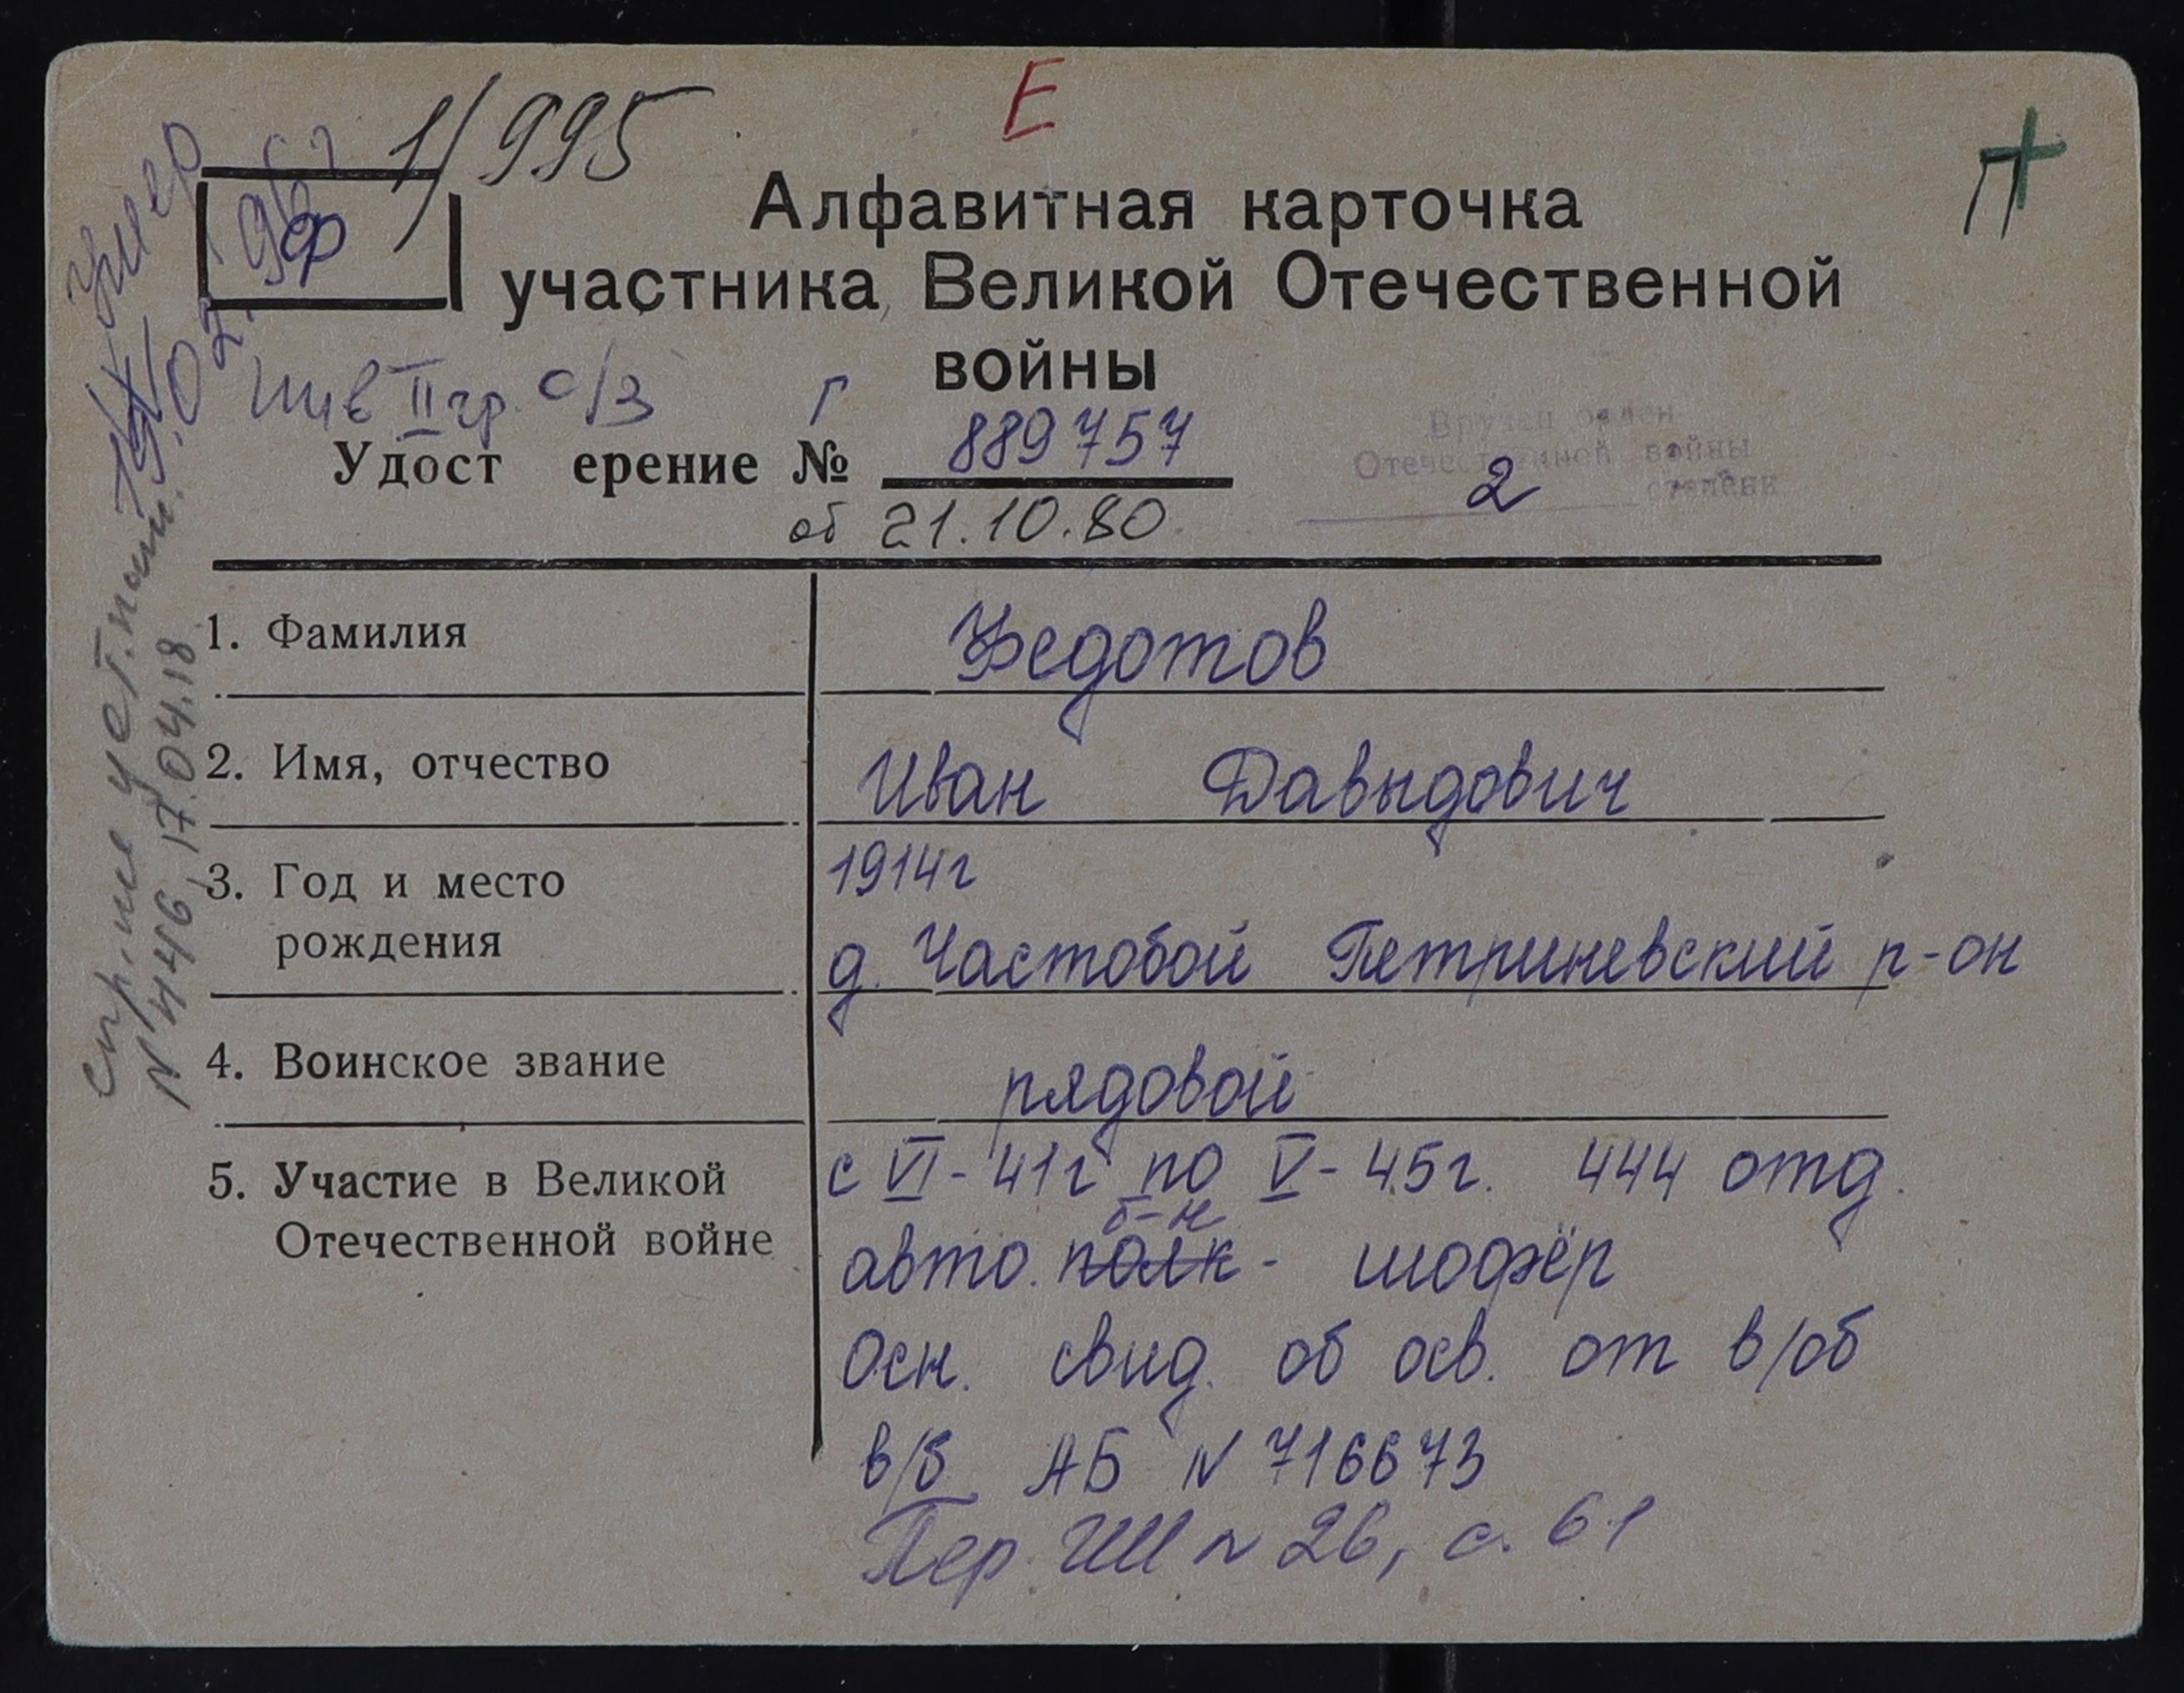 1/995
Е
П
Ф
умер
Алфавитная карточка
участника Великой Отечественной
войны
инв II гр. о/з
Г
Удост ерение № 889757
об 21.10.80
Вручен орден
Отечественной войны
2 степени
1. Фамилия Федотов
2. Имя, отчество Иван Давыдович
3. Год и место 1914г
рождения д. Частобой Петриневский р-он
4. Воинское звание рядовой
5. Участие в Великой с VI-41г по V-45г. 444 отд.
б-н
Отечественной войне авто. полк - шофёр
Осн. свид. об осв. от в/об
в/б АБ N 716673
Пер. N 26, с. 61
N 446, 17.04.18